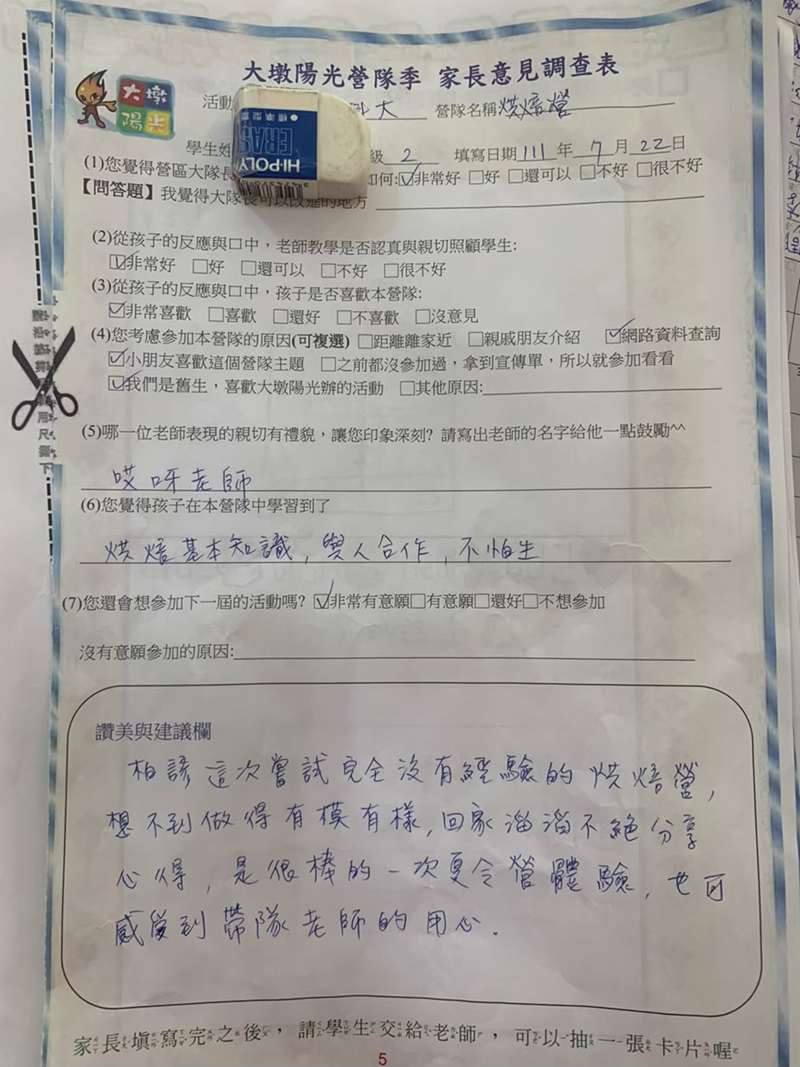 大墩陽光營隊季 家長意見調查表
大墩
陽光
活動 科大 營隊名稱烘焙營
學生姓 級 2 填寫日期111年7月22日
HI-POLY
ERAS
(1)您覺得營區大隊長 如何:☑非常好 □好 □還可以 □不好 □很不好
【問答題】我覺得大隊長可以改進的地方
(2)從孩子的反應與口中，老師教學是否認真與親切照顧學生:
☑非常好 □好 □還可以 □不好 □很不好
(3)從孩子的反應與口中，孩子是否喜歡本營隊:
☑非常喜歡 □喜歡 □還好 □不喜歡 □沒意見
(4)您考慮參加本營隊的原因(可複選) □距離離家近 □親戚朋友介紹 ☑網路資料查詢
☑小朋友喜歡這個營隊主題 □之前都沒參加過，拿到宣傳單，所以就參加看看
☑我們是舊生，喜歡大墩陽光辦的活動 □其他原因:
(5)哪一位老師表現的親切有禮貌，讓您印象深刻? 請寫出老師的名字給他一點鼓勵^^
哎呀老師
(6)您覺得孩子在本營隊中學習到了
烘焙基本知識，與人合作，不怕生
(7)您還會想參加下一屆的活動嗎? ☑非常有意願□有意願□還好□不想參加
沒有意願參加的原因:
讚美與建議欄
柏諺這次嘗試完全沒有經驗的烘焙營，
想不到做得有模有樣，回家滔滔不絕分享
心得，是很棒的一次夏令營體驗，也可
感受到帶隊老師的用心.
家長填寫完之後，請學生交給老師，可以抽一張卡片喔
5